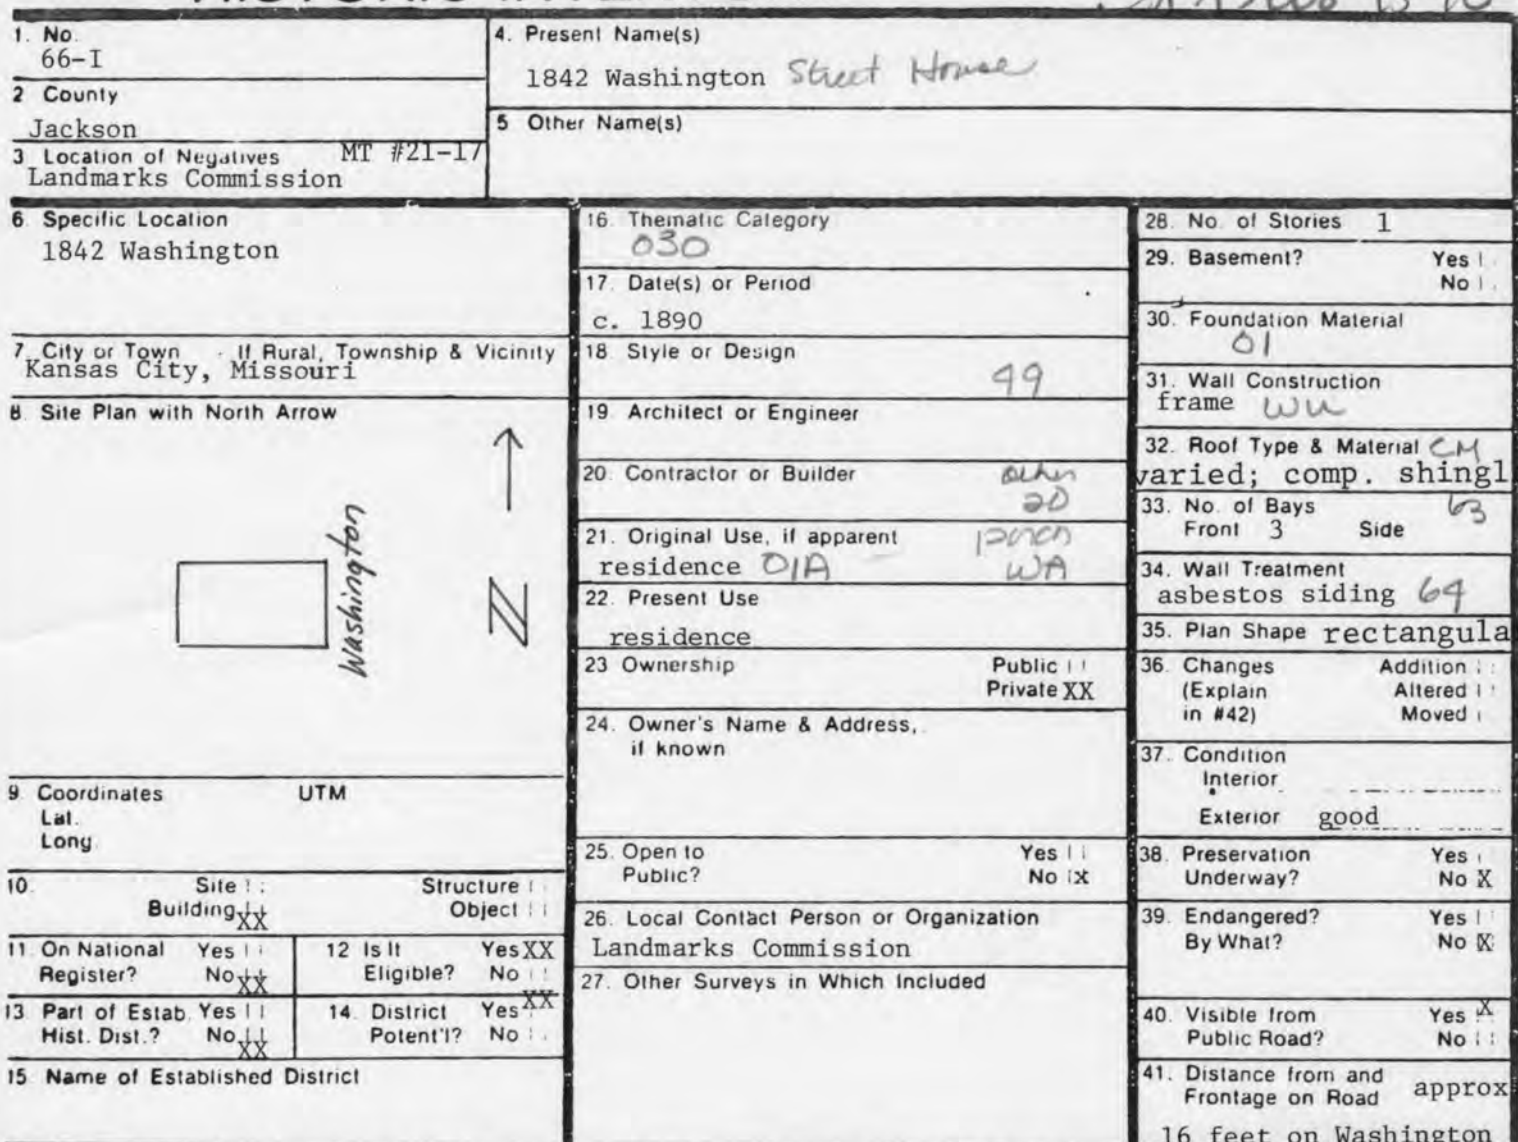 1. No.
66-I
2 County
Jackson
3 Location of Negatives MT #21-17
Landmarks Commission
4. Present Name(s)
1842 Washington Street House
5 Other Name(s)
6. Specific Location
1842 Washington
7. City or Town If Rural, Township & Vicinity
Kansas City, Missouri
8. Site Plan with North Arrow
Washington
N
9. Coordinates UTM
Lat.
Long.
10. Site Structure
Building XX Object
11. On National Yes
Register? No XX
12 Is It Yes XX
Eligible? No
13. Part of Estab. Yes
Hist. Dist.? No XX
14. District Yes XX
Potent'l? No
15. Name of Established District
16. Thematic Category
030
17. Date(s) or Period
c. 1890
18. Style or Design
49
19. Architect or Engineer
20. Contractor or Builder other
20
21. Original Use, if apparent porch
residence 01A WA
22. Present Use
residence
23 Ownership Public
Private XX
24. Owner's Name & Address,
if known
25. Open to Yes
Public? No X
26. Local Contact Person or Organization
Landmarks Commission
27. Other Surveys in Which Included
28. No. of Stories 1
29. Basement? Yes
No
30. Foundation Material
01
31. Wall Construction
frame
32. Roof Type & Material CM
varied; comp. shingl
33. No. of Bays 63
Front 3 Side
34. Wall Treatment
asbestos siding 64
35. Plan Shape rectangula
36. Changes Addition
(Explain Altered
in #42) Moved
37. Condition
Interior
Exterior good
38. Preservation Yes
Underway? No X
39. Endangered? Yes
By What? No X
40. Visible from Yes X
Public Road? No
41. Distance from and approx
Frontage on Road
16 feet on Washington